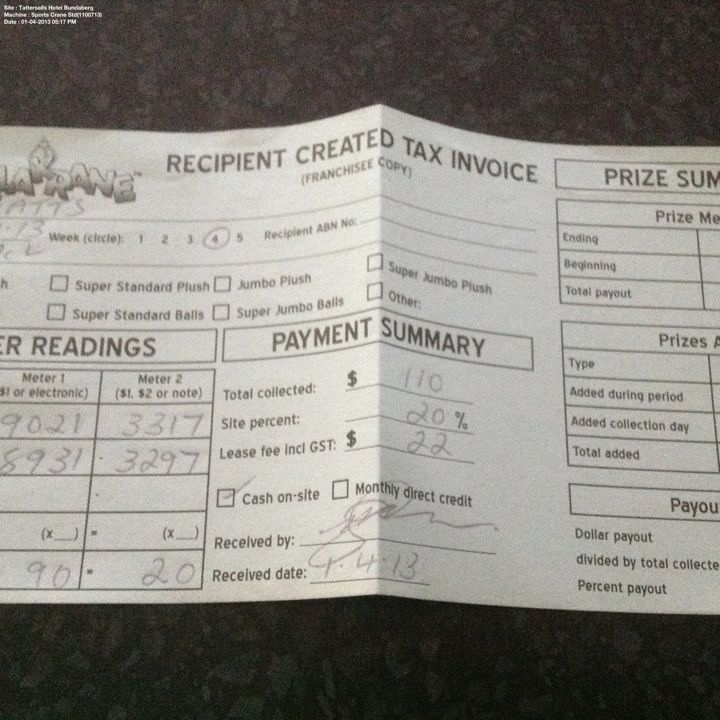 Site : Tattersalls Hotel Bundaberg
Machine : Sports Crane Std(1100713)
Date : 01-04-2013 05:17 PM
RECIPIENT CREATED TAX INVOICE
(FRANCHISEE COPY)
Week (circle): 1 2 3 4 5 Recipient ABN No:
Super Standard Plush Jumbo Plush Super Jumbo Plush
Super Standard Balls Super Jumbo Balls Other:
ER READINGS
Meter 1 Meter 2
$1 or electronic) ($1, $2 or note)
9021 3317
8931 - 3297
(x__) = (x__)
90 = 20
PAYMENT SUMMARY
Total collected: $ 110
Site percent: 20 %
Lease fee incl GST: $ 22
Cash on-site Monthly direct credit
Received by:
Received date: 1.4.13
PRIZE SUM
Prize Me
Ending
Beginning
Total payout
Prizes A
Type
Added during period
Added collection day
Total added
Payou
Dollar payout
divided by total collecte
Percent payout